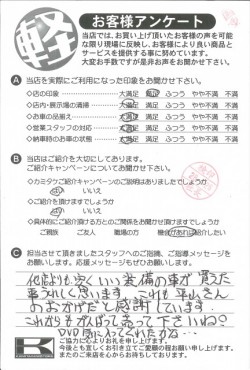 軽
お客様アンケート
当店では、お買い上げ頂いたお客様の声を可能
な限り現場に反映し、お客様により良い商品と
サービスを提供する事に努めています。
大変お手数ですが是非お声をお聞かせ下さい。
A 当店を実際にご利用になった印象をお聞かせ下さい。
◇店の印象 大満足 満足 ふつう やや不満 不満
◇店内・展示場の清掃 大満足 満足 ふつう やや不満 不満
◇お車の品揃え 大満足 満足 ふつう やや不満 不満
◇営業スタッフの対応 大満足 満足 ふつう やや不満 不満
◇納車時のお車の状態 大満足 満足 ふつう やや不満 不満
B 当店はご紹介を大切にしております。
ご紹介キャンペーンについてお聞かせ下さい。
◇カミタケご紹介キャンペーンのご説明はありましたでしょうか
はい いいえ
◇ご紹介を頂けますでしょうか
はい いいえ
◇具体的にご紹介頂ける方とのご関係をお聞かせ頂けますでしょうか
ご親族 ご友人 職場の方 機会があれば紹介したい
C 担当させて頂きましたスタッフへのご指摘、ご指導メッセージを
お願いします。応援メッセージもぜひお願いします。
他店よりも安くいい装備の車が買えた
事うれしく思います。これも平山さん
のおかげだと感謝しています。
これからもがんばって下さいね
K
ご協力に心よりお礼を申し上げます。
今後とも宜しくお引き立てご愛顧の程お願い申し上げます。
またのご来店を心からお待ちしております。